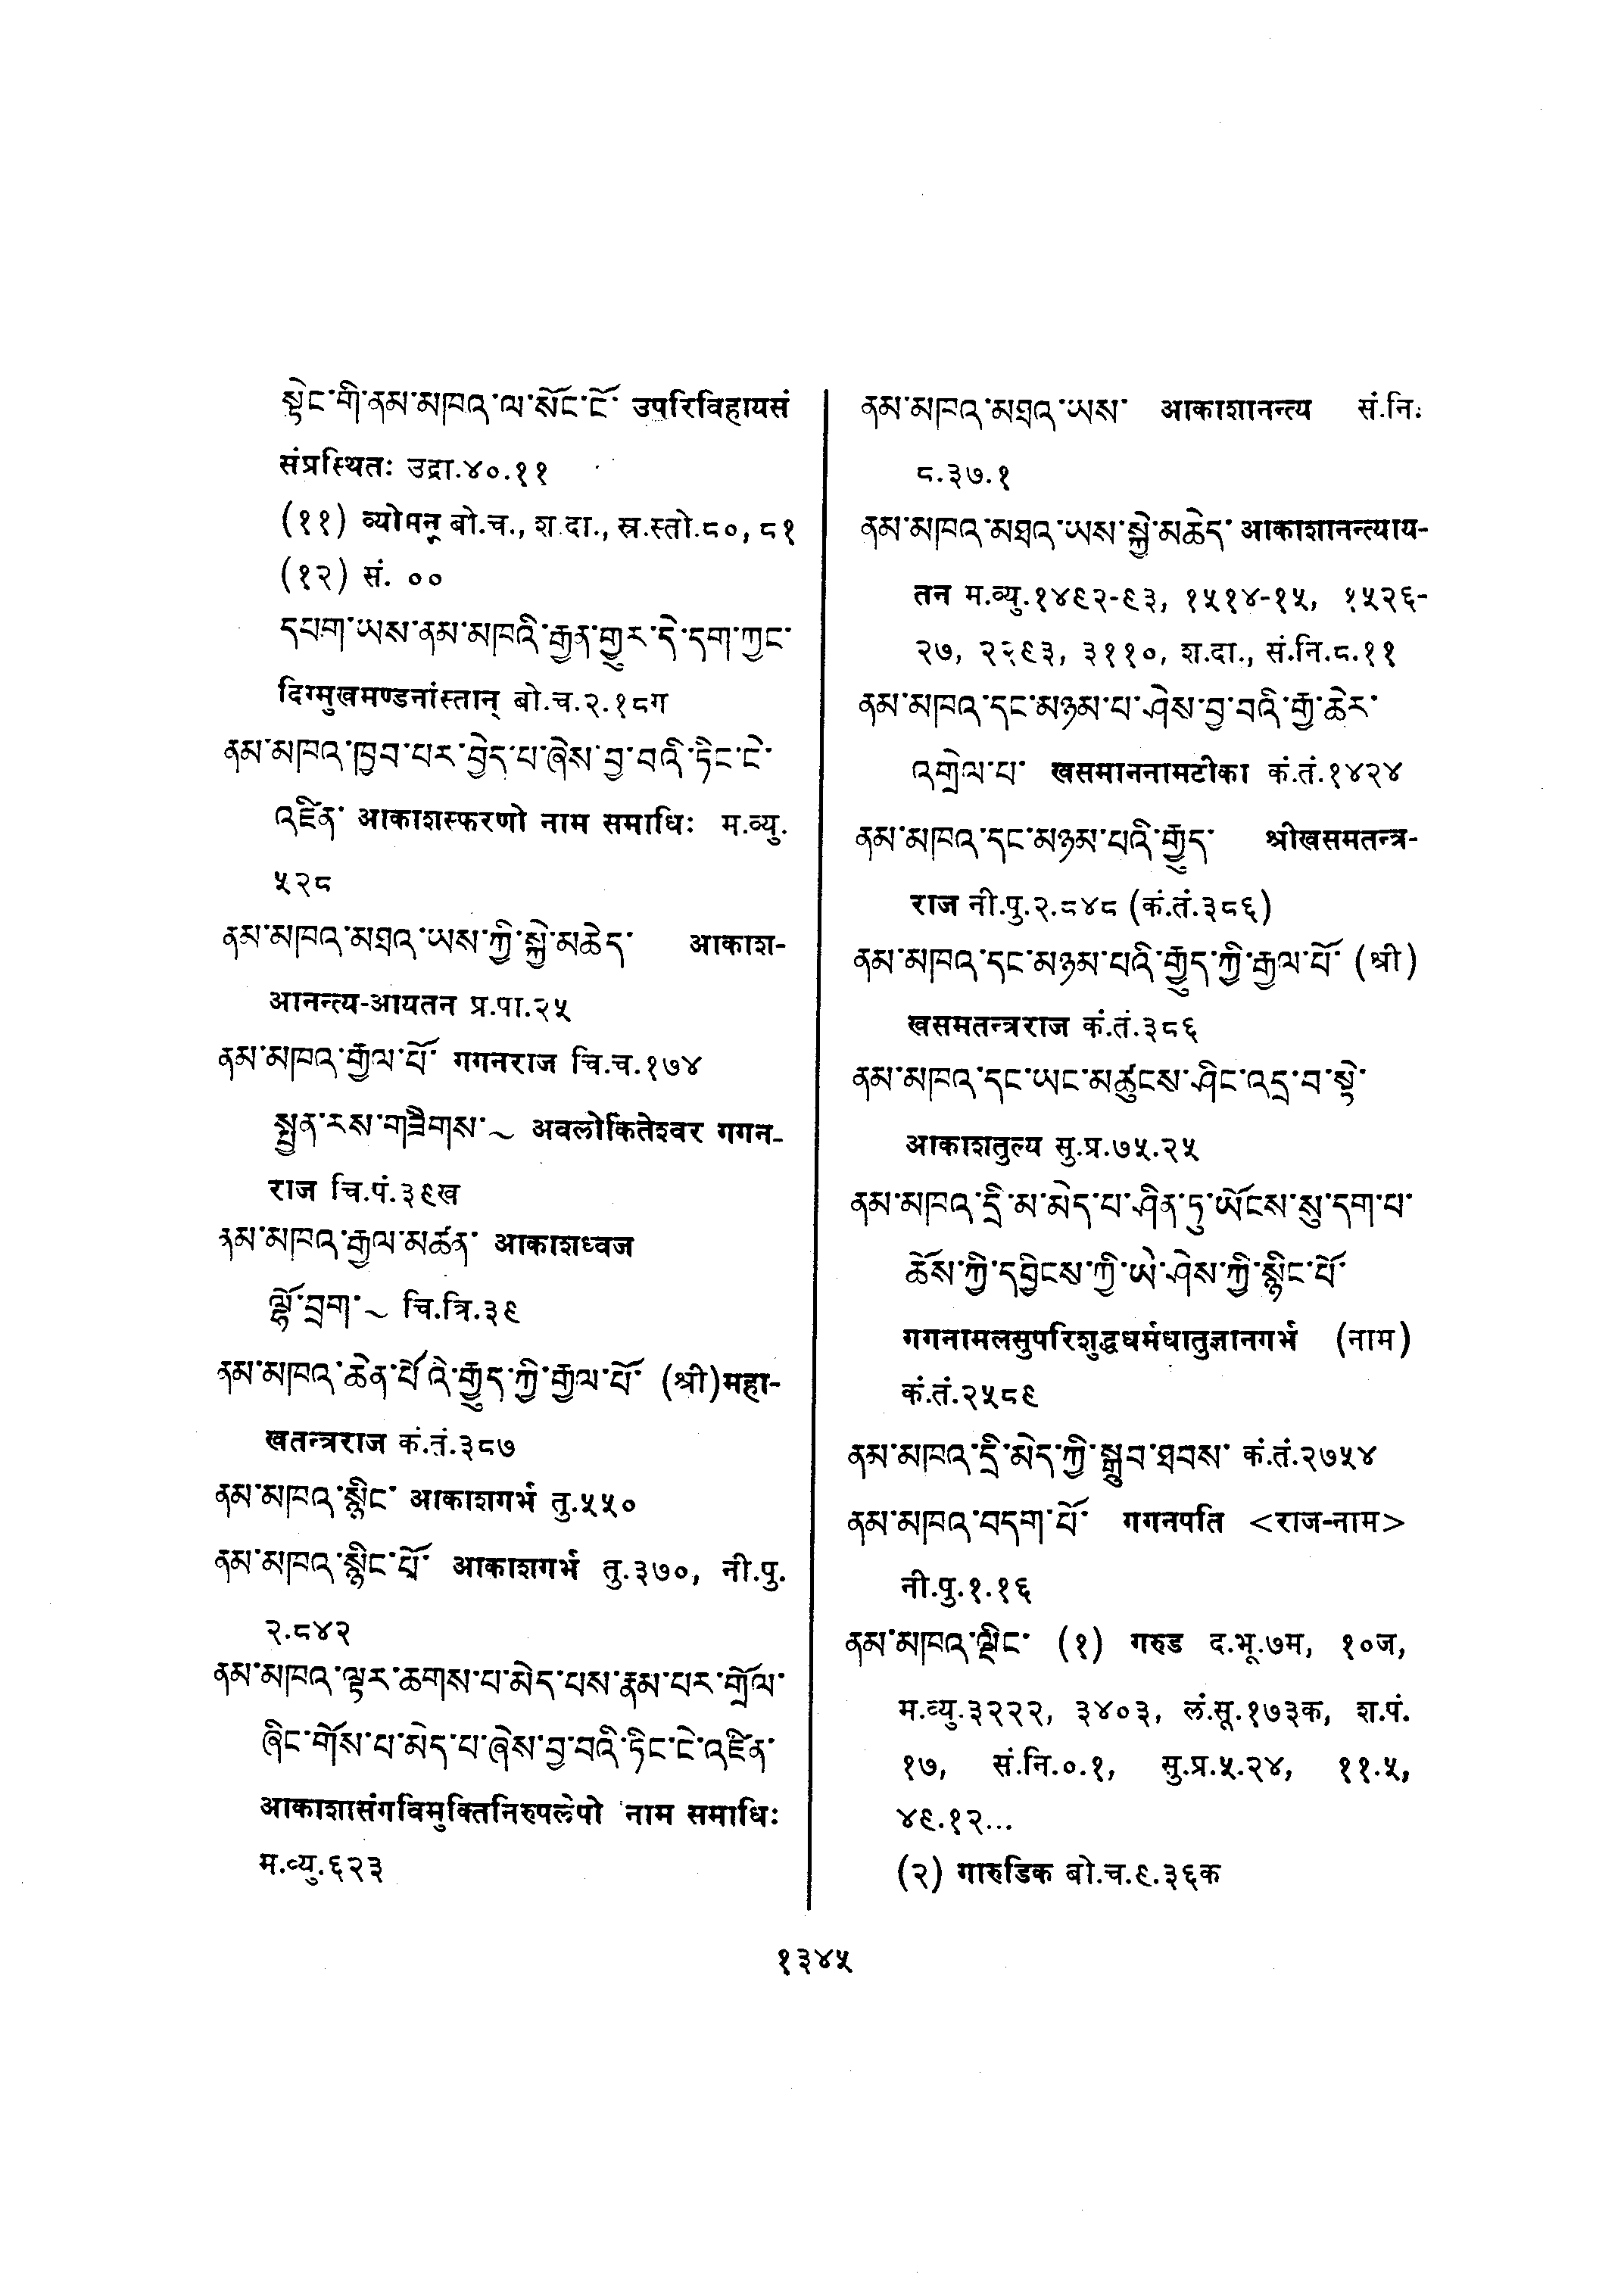 སྟེང་གི་ནམ་མཁའ་ལ་སོང་ངོ་ उपरिविहायसं
संप्रस्थितः उद्रा.४०.११
(११) व्योमन् बो.च., श.दा., स्र.स्तो.८०, ८१
(१२) सं. ००
དཔག་ཡས་ནམ་མཁའི་རྒྱན་གྱུར་དེ་དག་ཀྱང་
दिग्मुखमण्डनांस्तान् बो.च.२.१८ग
ནམ་མཁའ་ཁྱབ་པར་བྱེད་པ་ཞེས་བྱ་བའི་ཏིང་ངེ་
འཛིན་ आकाशस्फरणो नाम समाधिः म.व्यु.
५२८
ནམ་མཁའ་མཐའ་ཡས་ཀྱི་སྐྱེ་མཆེད་ आकाश-
आनन्त्य-आयतन प्र.पा.२५
ནམ་མཁའ་རྒྱལ་པོ་ गगनराज चि.च.१७४
སྤྱན་རས་གཟིགས་~ अवलोकितेश्वर गगन-
राज चि.पं.३९ख
ནམ་མཁའ་རྒྱལ་མཚན་ आकाशध्वज
ལྷོ་བྲག་~ चि.त्रि.३९
ནམ་མཁའ་ཆེན་པོའི་རྒྱུད་ཀྱི་རྒྱལ་པོ་ (श्री)महा-
खतन्त्रराज कं.तं.३८७
ནམ་མཁའ་སྙིང་ आकाशगर्भ तु.५५०
ནམ་མཁའ་སྙིང་པོ་ आकाशगर्भ तु.३७०, नी.पु.
२.८४२
ནམ་མཁའ་ལྟར་ཆགས་པ་མེད་པས་རྣམ་པར་གྲོལ་
ཞིང་གོས་པ་མེད་པ་ཞེས་བྱ་བའི་ཏིང་ངེ་འཛིན་
आकाशासंगविमुक्तिनिरुपलेपो नाम समाधिः
म.व्यु.६२३
ནམ་མཁའ་མཐའ་ཡས་ आकाशानन्त्य सं.नि.
८.३७.१
ནམ་མཁའ་མཐའ་ཡས་སྐྱེ་མཆེད་ आकाशानन्त्याय-
तन म.व्यु.१४९२-९३, १५१४-१५, १५२६-
२७, २२९३, ३११०, श.दा., सं.नि.८.११
ནམ་མཁའ་དང་མཉམ་པ་ཤེས་བྱ་བའི་རྒྱ་ཆེར་
འགྲེལ་པ་ खसमाननामटीका कं.तं.१४२४
ནམ་མཁའ་དང་མཉམ་པའི་རྒྱུད་ श्रीखसमतन्त्र-
राज नी.पु.२.८४८ (कं.तं.३८६)
ནམ་མཁའ་དང་མཉམ་པའི་རྒྱུད་ཀྱི་རྒྱལ་པོ་ (श्री)
खसमतन्त्रराज कं.तं.३८६
ནམ་མཁའ་དང་ཡང་མཚུངས་ཤིང་འདྲ་བ་སྟེ་
आकाशतुल्य सु.प्र.७५.२५
ནམ་མཁའ་དྲི་མ་མེད་པ་ཤིན་ཏུ་ཡོངས་སུ་དག་པ་
ཆོས་ཀྱི་དབྱིངས་ཀྱི་ཡེ་ཤེས་ཀྱི་སྙིང་པོ་
गगनामलसुपरिशुद्धधर्मधातुज्ञानगर्भ (नाम)
कं.तं.२५८९
ནམ་མཁའ་དྲི་མེད་ཀྱི་སྒྲུབ་ཐབས་ कं.तं.२७५४
ནམ་མཁའ་བདག་པོ་ गगनपति <राज-नाम>
नी.पु.१.१६
ནམ་མཁའ་ལྡིང་ (१) गरुड द.भू.७म, १०ज,
म.व्यु.३२२२, ३४०३, लं.सू.१७३क, श.पं.
१७, सं.नि.०.१, सु.प्र.५.२४, ११.५,
४९.१२...
(२) गारुडिक बो.च.९.३६क
१३४५